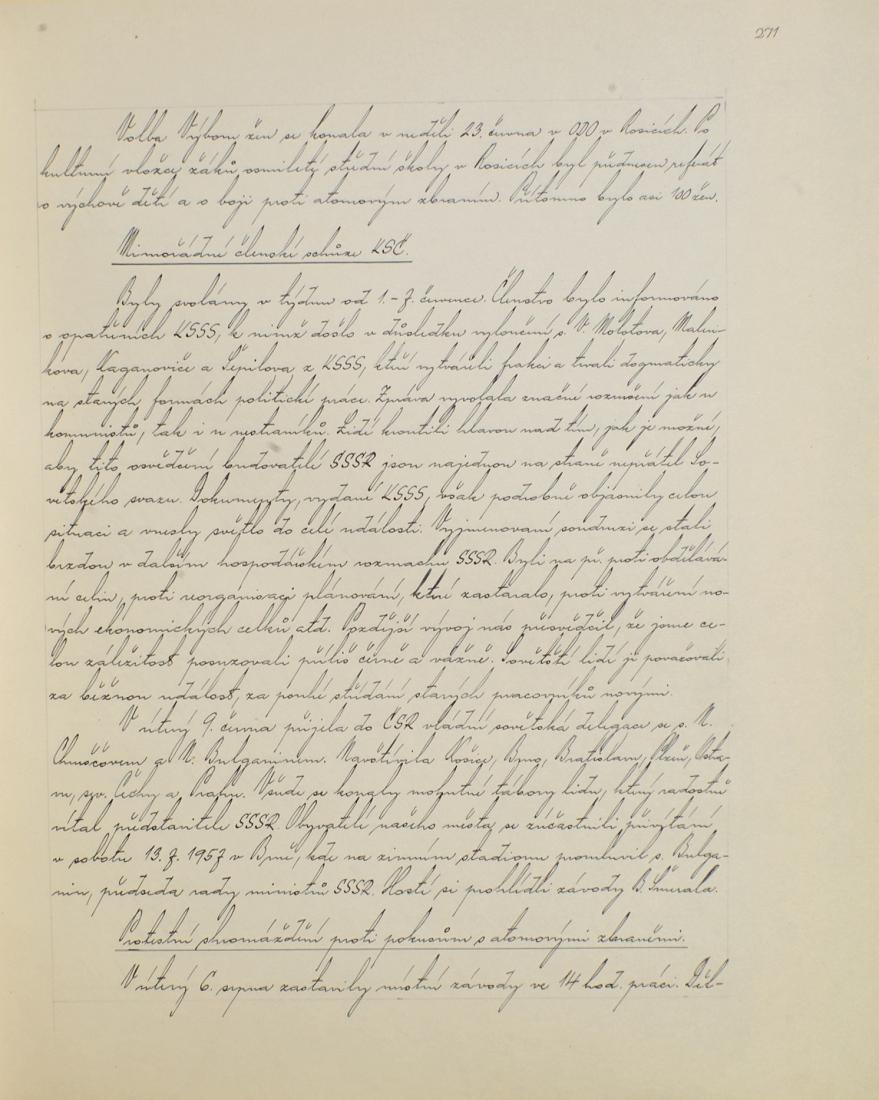 271
Volba Výboru žen se konala v neděli 23. června v ODO v Rosicích. Po
kulturní vložce žáků osmileté střední školy v Rosicích byl přednesen referát
o výchově dětí a o boji proti atomovým zbraním. Přítomno bylo asi 100 žen.
Mimořádné členské schůze KSČ.
Byly svolány v týdnu od 1.-7. července. Členstvo bylo informováno
o opatřeních KSSS, k nimž došlo v důsledku vyloučení s. V. Molotova, Malen-
kova, Kaganoviče a Šepilova z KSSS, kteří vytvářeli frakci a trvali dogmaticky
na starých formách politické práce. Zpráva vyvolala značné rozrušení jak u
komunistů, tak i u nestraníků. Lidé kroutili hlavou nad tím, jak je možné,
aby tito osvědčení budovatelé SSSR jsou najednou na straně nepřátel So-
větského svazu. Dokumenty, vydané KSSS, však podrobně objasnily celou
situaci a vnesly světlo do celé události. Vyjmenovaní soudruzi se stali
brzdou v dalším hospodářském rozmachu SSSR. Byli na př. proti obdělává-
ní celin, proti reorganisaci plánování, které zastaralo, proti vytváření no-
vých ekonomických celků atd. Pozdější vývoj nás přesvědčil, že jsme ce-
lou záležitost posuzovali příliš černě a vážně. Sovětští lidé ji považovali
za běžnou událost, za pouhé střídání starých pracovníků novými.
V úterý 9. června přijela do ČSR vládní sovětská delegace se s. N.
Chruščovem a N. Bulganinem. Navštívila Košice, Brno, Bratislavu, Plzeň, Ostra-
vu, sev. Čechy a Prahu. Všude se konaly mohutné tábory lidu, který radostně
vítal představitele SSSR. Obyvatelé našeho města se zúčastnili přivítání
v sobotu 13. 7. 1957 v Brně, kde na zimním stadionu promluvil s. Bulga-
nin, předseda rady ministrů SSSR. Hosté si prohlédli závody B. Šmerala.
Protestní shromáždění proti pokusům s atomovými zbraněmi.
V úterý 6. srpna zastavily místní závody ve 14 hod. práci. Děl-